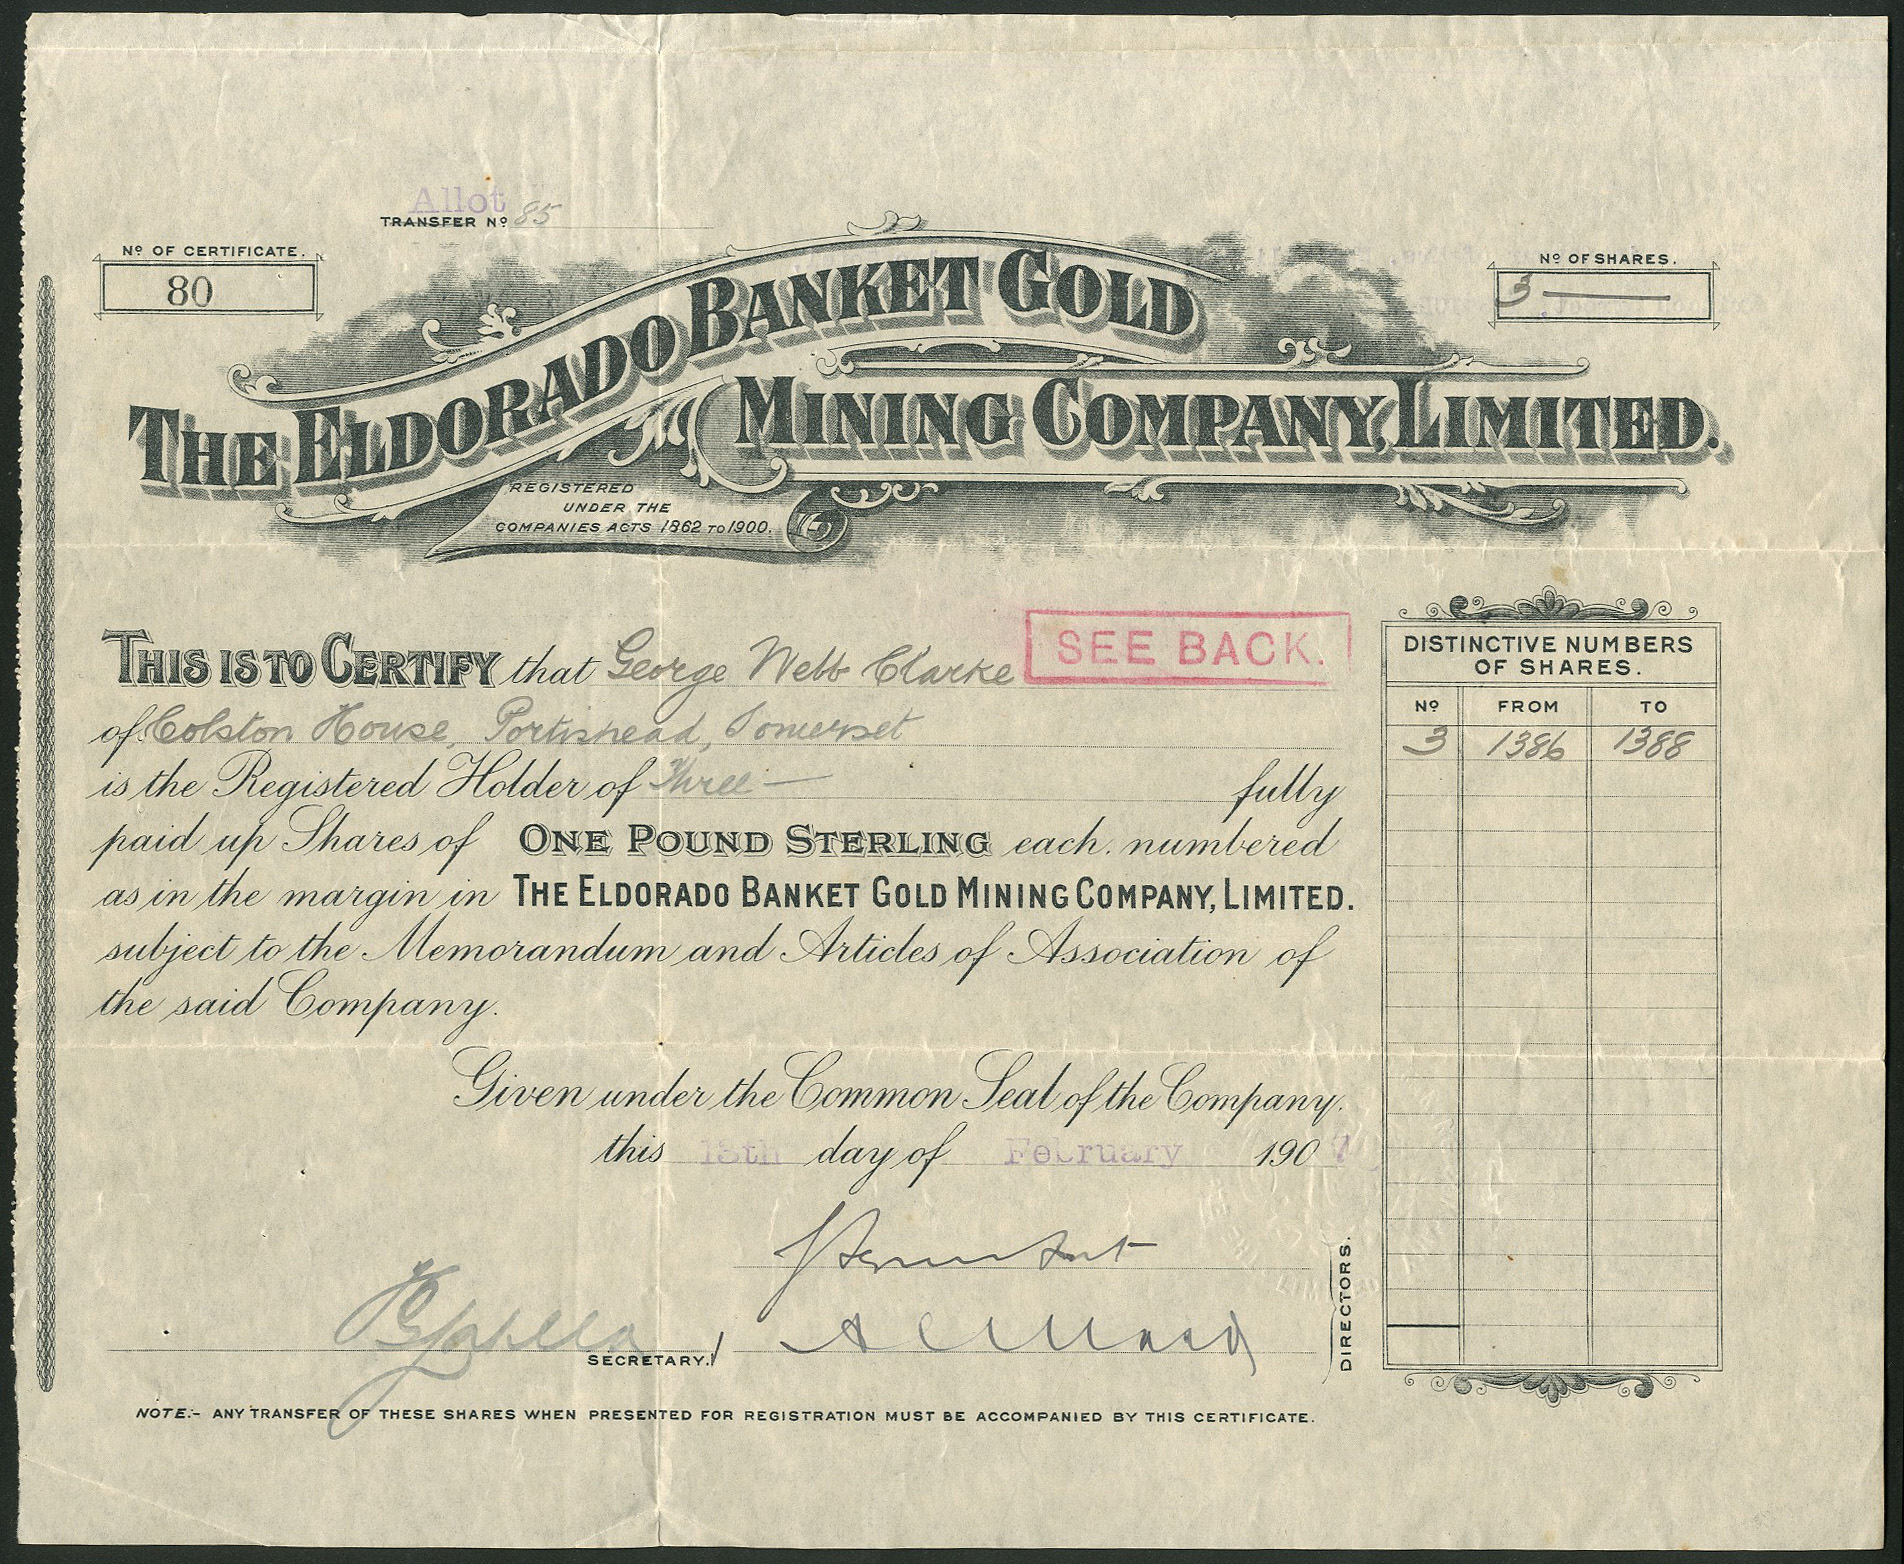 Allot
TRANSFER Nº 85
Nº OF CERTIFICATE.
80
Nº OF SHARES.
3
THE ELDORADO BANKET GOLD
MINING COMPANY, LIMITED.
REGISTERED
UNDER THE
COMPANIES ACTS 1862 TO 1900.
SEE BACK.
THIS IS TO CERTIFY that George Webb Clarke
of Colston House, Portishead, Somerset
is the Registered Holder of Three — fully
paid up Shares of ONE POUND STERLING each. numbered
as in the margin in THE ELDORADO BANKET GOLD MINING COMPANY, LIMITED.
subject to the Memorandum and Articles of Association of
the said Company.
DISTINCTIVE NUMBERS
OF SHARES.
Nº FROM TO
3 1386 1388
Given under the Common Seal of the Company.
this day of February 190
DIRECTORS.
SECRETARY.
NOTE:- ANY TRANSFER OF THESE SHARES WHEN PRESENTED FOR REGISTRATION MUST BE ACCOMPANIED BY THIS CERTIFICATE.